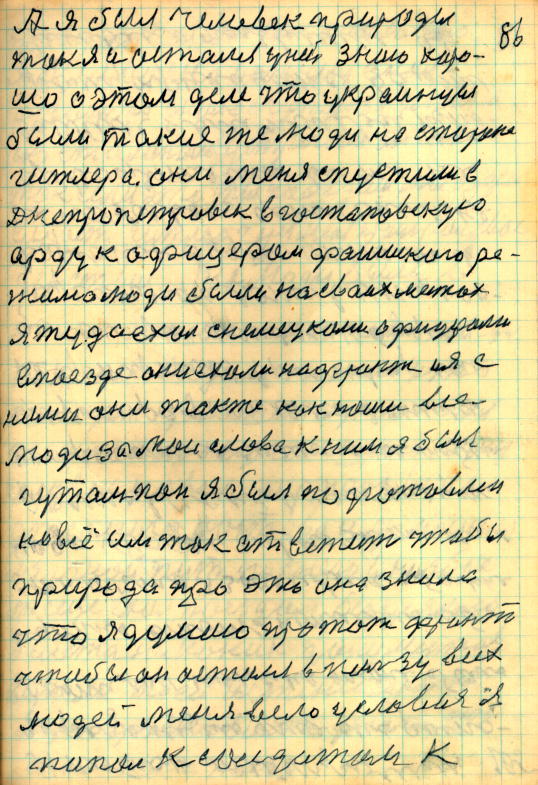 86
А я был человек природы
так я и остался у ней знаю хоро-
шо о этом деле что украинцы
были такие же люди на стороне
гитлера. они меня спустили в
Днепропетровск в гостаповскую
орду к офицерам фашиского ре-
жима люди были на своих местах
я туда ехал с немецкими офицерами
в поезде они ехали на фронт и я с
ними они также как наши все
люди за мои слова к ним я был
гут я был подготовлен
на всё им так ответит чтобы
природа про это она знала
что я думаю про тот фронт
чтобы он остался в пользу всех
людей меня вело условия я
попал к солдатам к